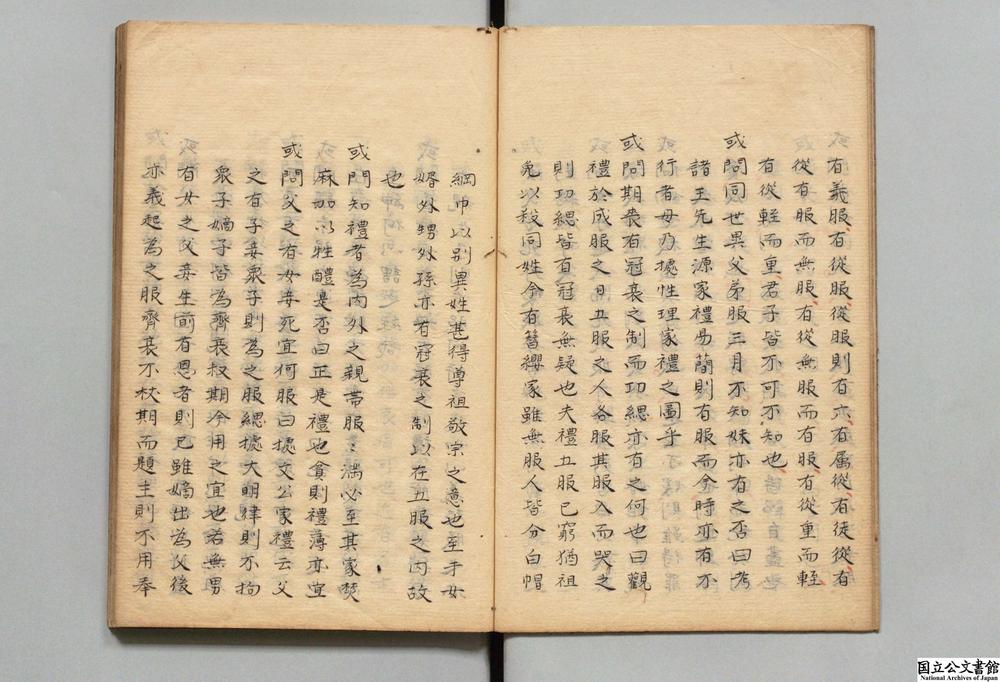 有義服有從服從服則有六有屬從有徒從有
從有服而無服有從無服而有服有從重而輕
有從輕而重君子皆不可不知也
或問同世異父弟服三月不知妹亦有之否曰考
諸王先生源家禮易簡則有服而今時亦有不
行者毋乃據性理家禮之圖乎
或問期喪有冠衰之制而功緦亦有之何也曰觀
禮於成服之日五服之人各服其服入而哭之
則功緦皆有冠衰無疑也夫禮五服已窮猶袒
免以殺同姓今有簪纓家雖無服人皆分白帽
綱巾以別異姓甚得尊祖敬宗之意也至于女
婿外甥外孫亦有冠衰之制以在五服之内故
也
或問知禮者為内外之親帶服〻滿必至其家焚
麻加以牲醴是否曰正是禮也貧則禮薄亦宜
或問父之有女妾死宜何服曰據文公家禮云父
之有子妾衆子則為之服緦據大明律則不拘
衆子嫡子皆為齊衰杖期今用之宜也若無男
有女之父妾生前有恩者則已雖嫡出為父後
亦義起為之服齊衰不杖期而題主則不用奉
国立公文書館
National Archives of Japan